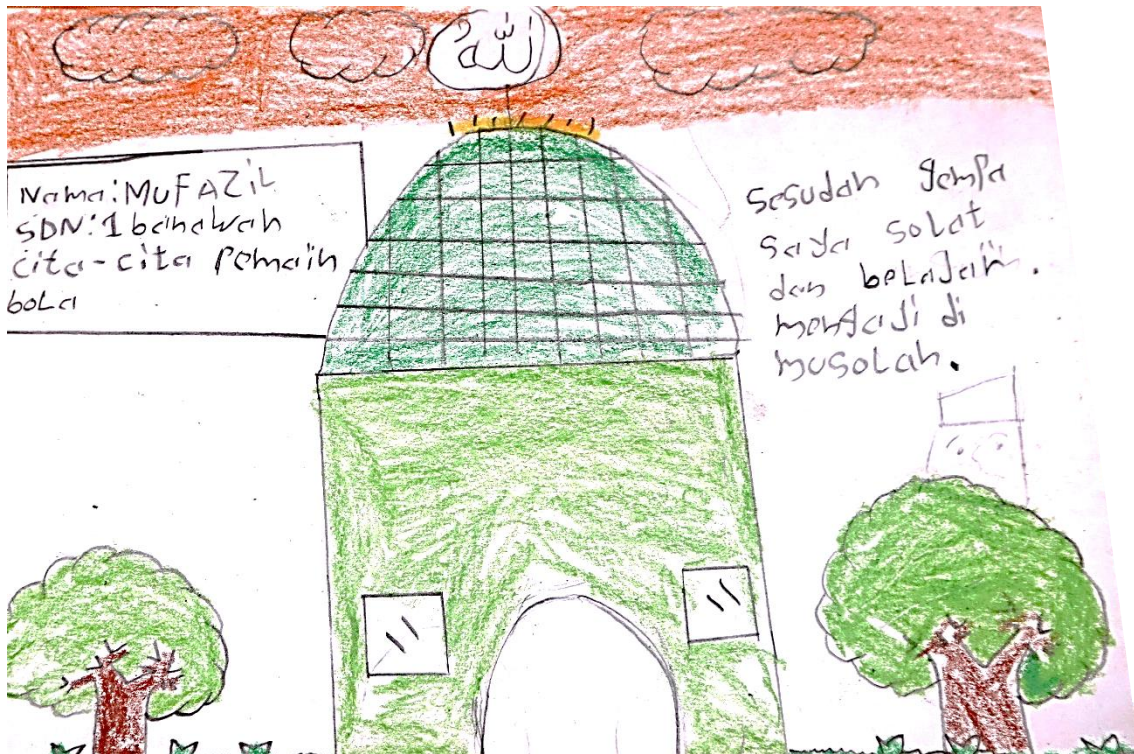 الله
Nama: MUFAZiL
SDN: 1 banawah
cita-cita Pemain
bola
Sesudah gempa
saya solat
dan beLaJaiR.
mengaJi di
musolah.